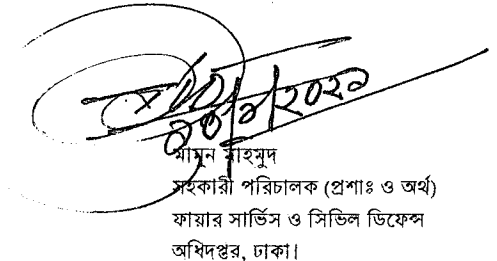 মামুন মাহমুদ
সহকারী পরিচালক (প্রশাঃ ও অর্থ)
ফায়ার সার্ভিস ও সিভিল ডিফেন্স
অধিদপ্তর, ঢাকা।